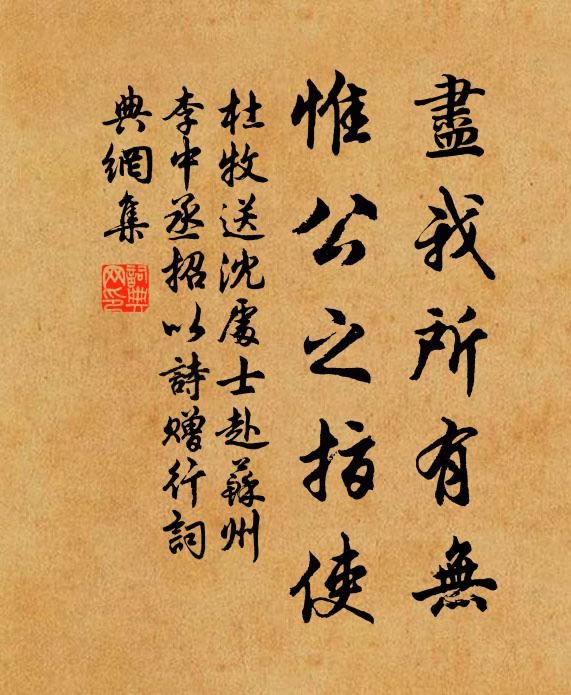 盡我所有無
惟公之指使
杜牧送沈處士赴蘇州
李中丞招以詩贈行詞
典網集
詞典
网印